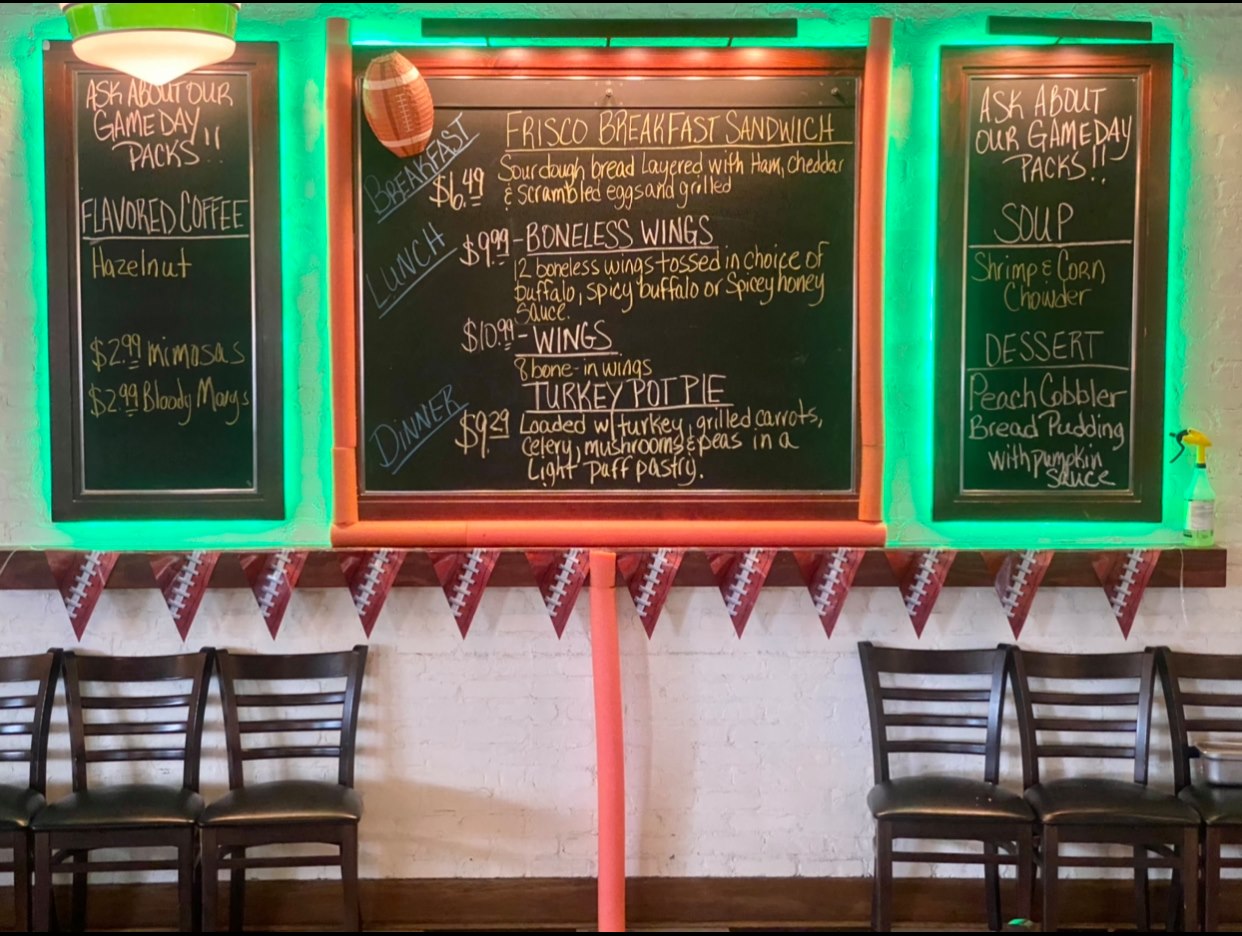 ASK ABOUT OUR
GAMEDAY
PACKS!!
FLAVORED COFFEE
Hazelnut
$2.99 mimosas
$2.99 Bloody Marys
BREAKFAST
FRISCO BREAKFAST SANDWICH
$6.49 Sourdough bread Layered with Ham, cheddar
& scrambled eggs and grilled
LUNCH
$9.99 - BONELESS WINGS
12 boneless wings tossed in choice of
buffalo, spicy buffalo or Spicey honey
Sauce.
$10.99 - WINGS
8 bone-in wings
DINNER
TURKEY POT PIE
$9.29 Loaded w/ turkey, grilled carrots,
celery, mushrooms & peas in a
Light Puff pastry.
ASK ABOUT
OUR GAMEDAY
PACKS!!
SOUP
Shrimp & Corn
Chowder
DESSERT
Peach Cobbler
Bread Pudding
with pumpkin
Sauce